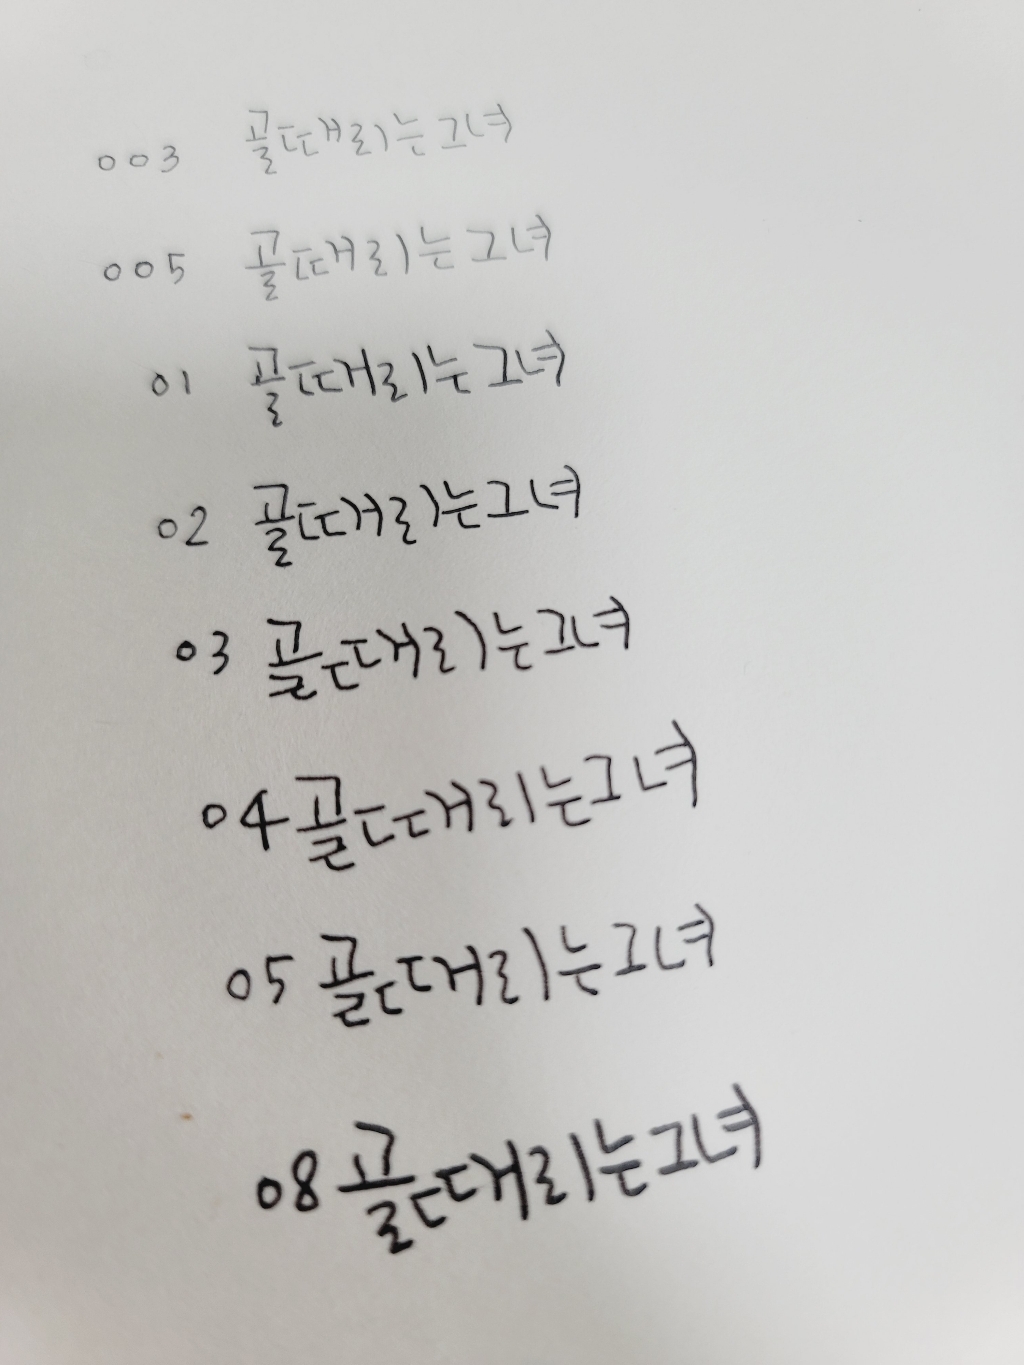 003 골때리는그녀
005 골때리는그녀
01 골때리는그녀
02 골때리는그녀
03 골때리는그녀
04 골때리는그녀
05 골때리는그녀
08 골때리는그녀